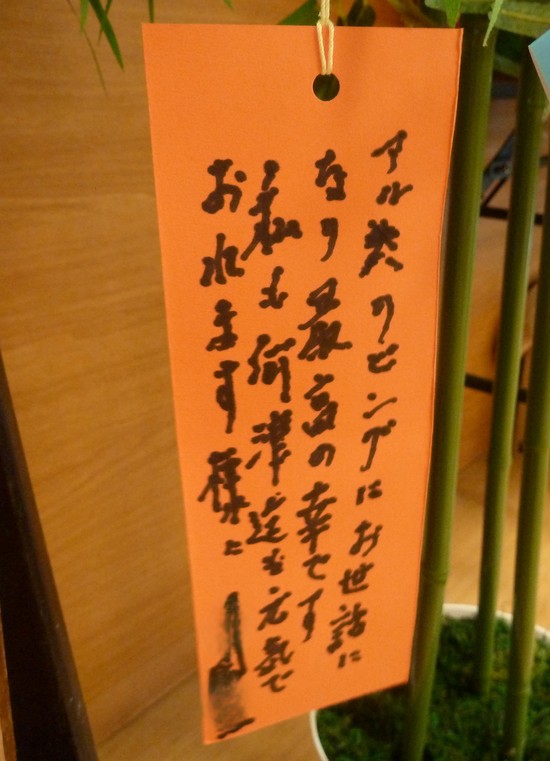 アル炎リビングにお世話に
なり最高の幸です
私も何準迄も元気で
おれます様に